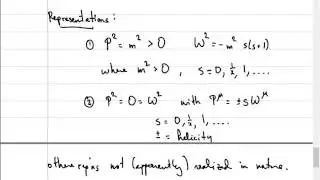 Representations:
① P² = m² > 0 W² = -m² s(s+1)
where m² > 0, s = 0, ½, 1, ....
② P² = 0 = W² with Pᵘ = ± s Wᵘ
s = 0, ½, 1, ....
± = helicity
other rep'ns not (apparently) realized in nature.